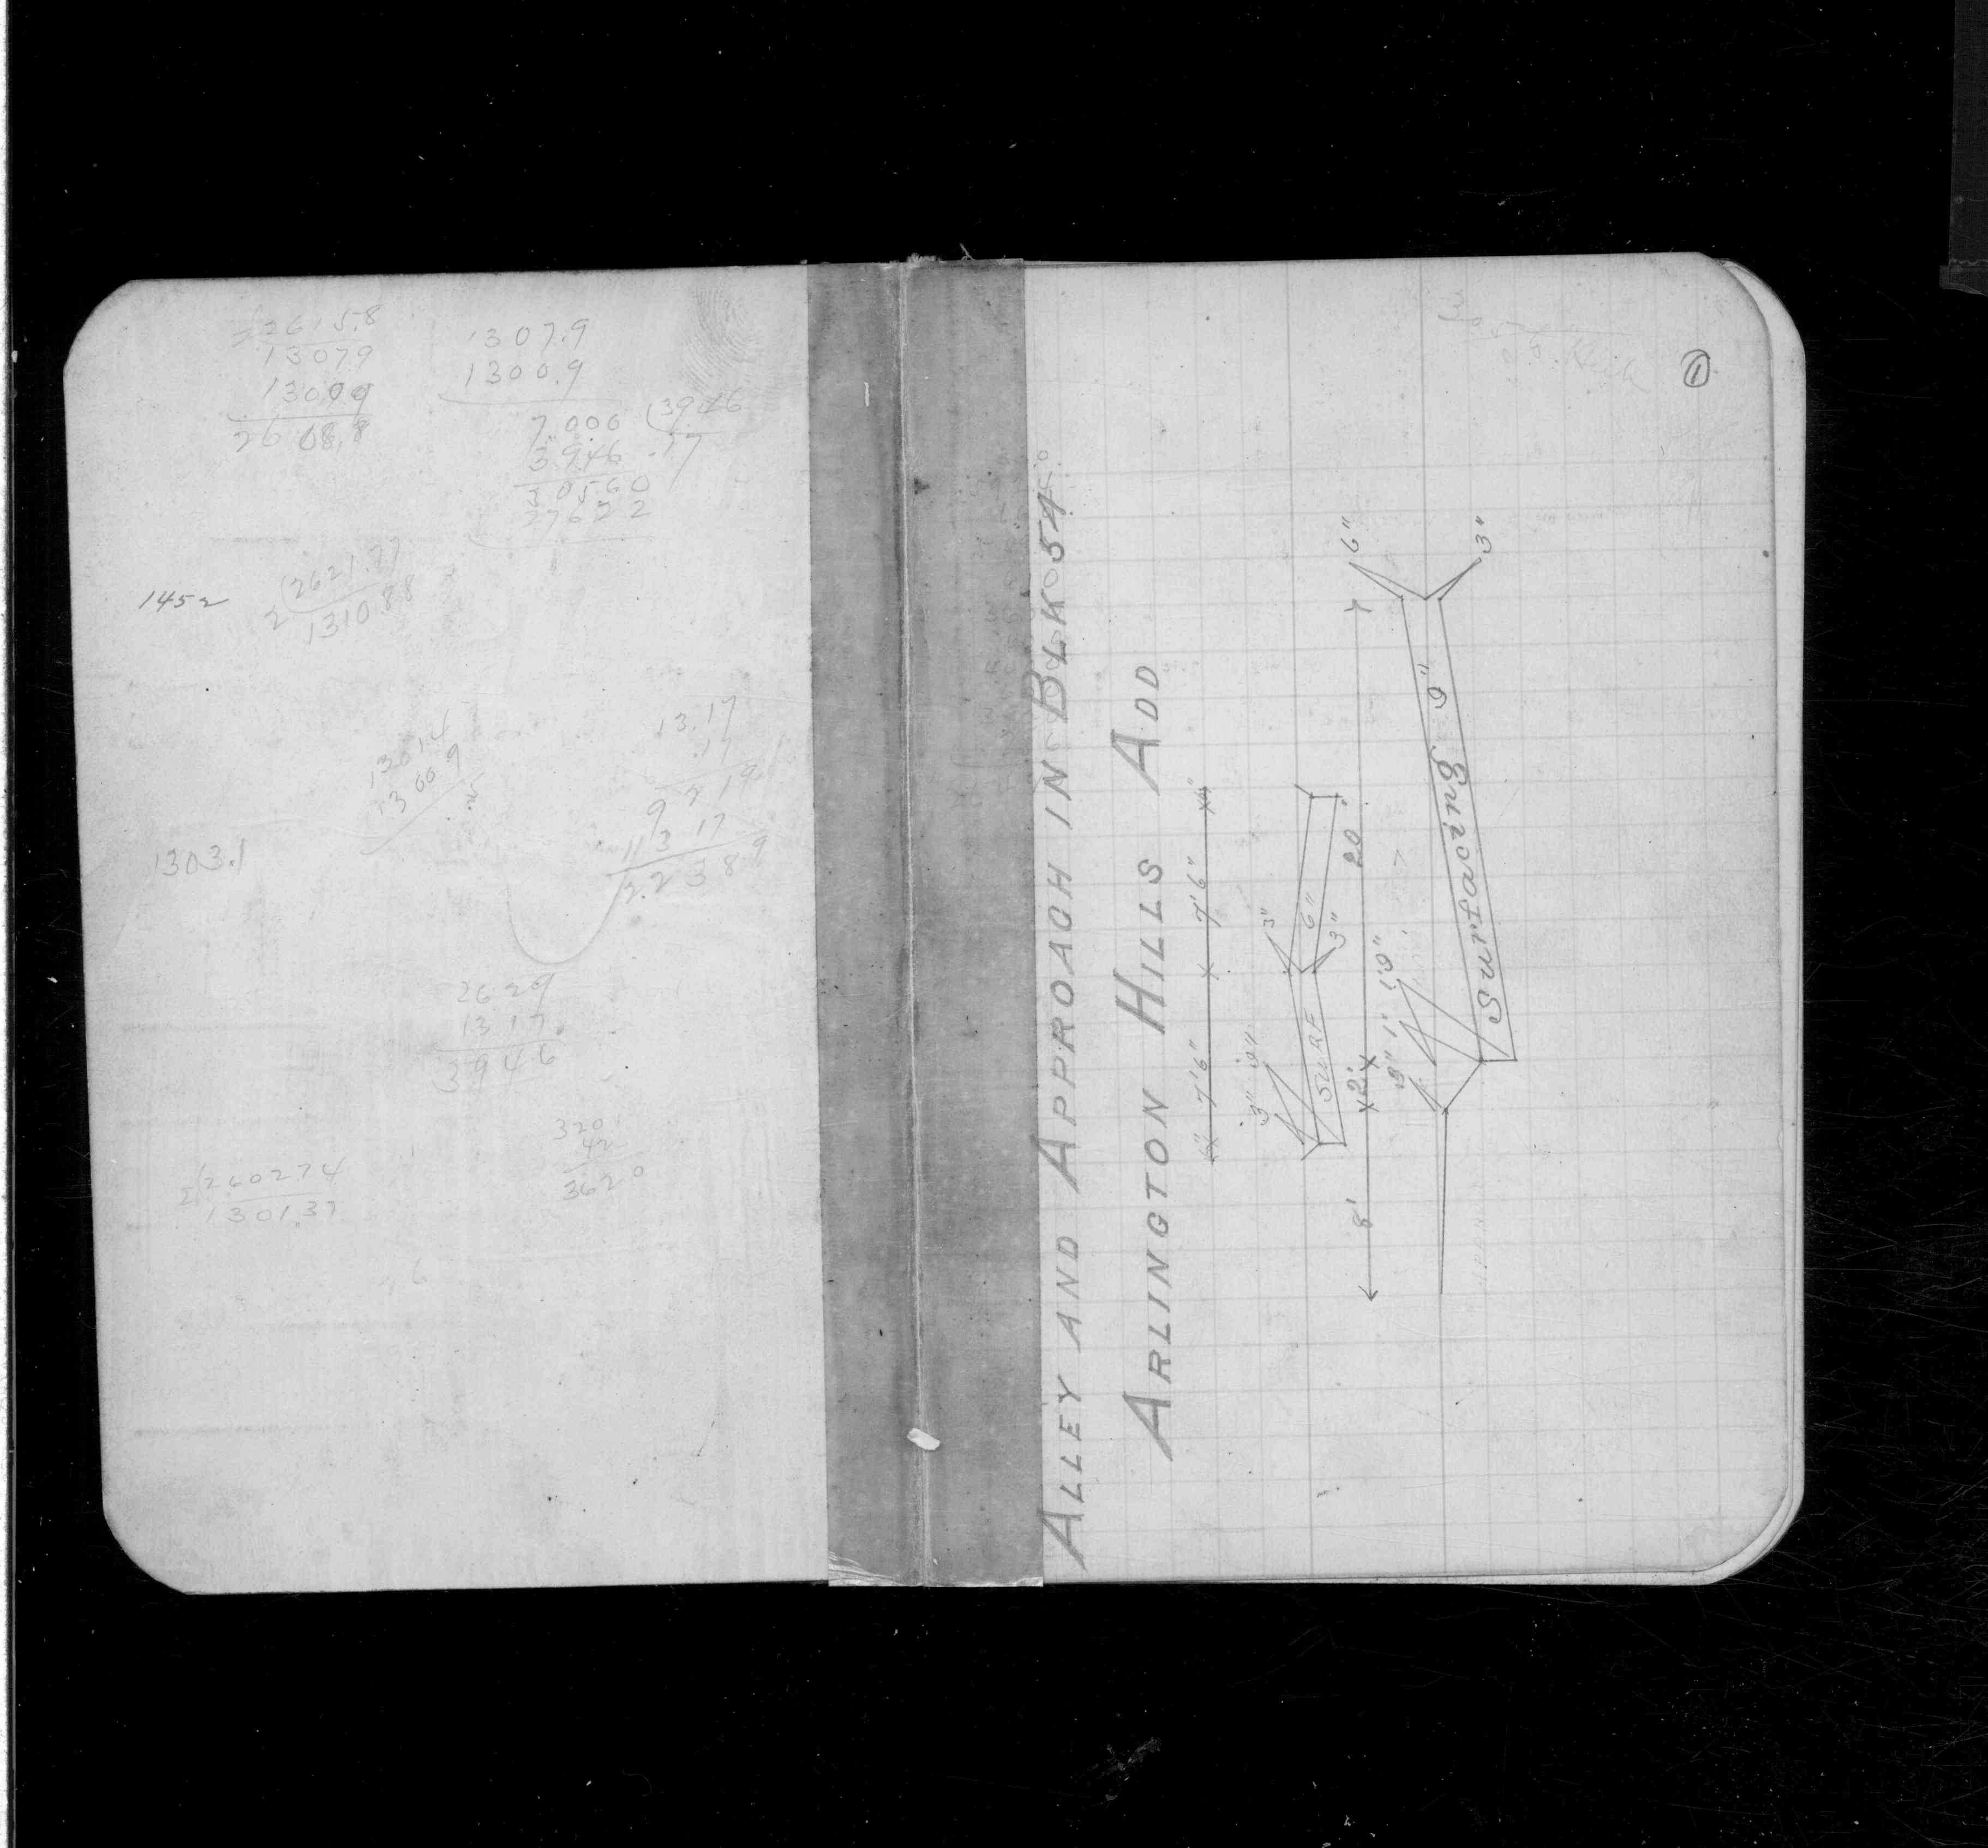 2615.8
13079
13099
2608.8
1307.9
1300.9
7.000
3946
.17
3946
30560
27622
1452
2 2621.77
1310 88
13014
1300 9
13.17
.17
9 2 19
113 17
2.2 3 8 9
1303.1
2629
1317.
3946
320
42
3620
2 260274
1301.37
46
1
ALLEY AND APPROACH IN BLK 54
ARLINGTON HILLS ADD
6" 7'6" 7'6" 6"
3" 9" 3"
SURF 6"
3"
8' 2' 20
3" 1' 9" 6"
Surfacing 9"
3"